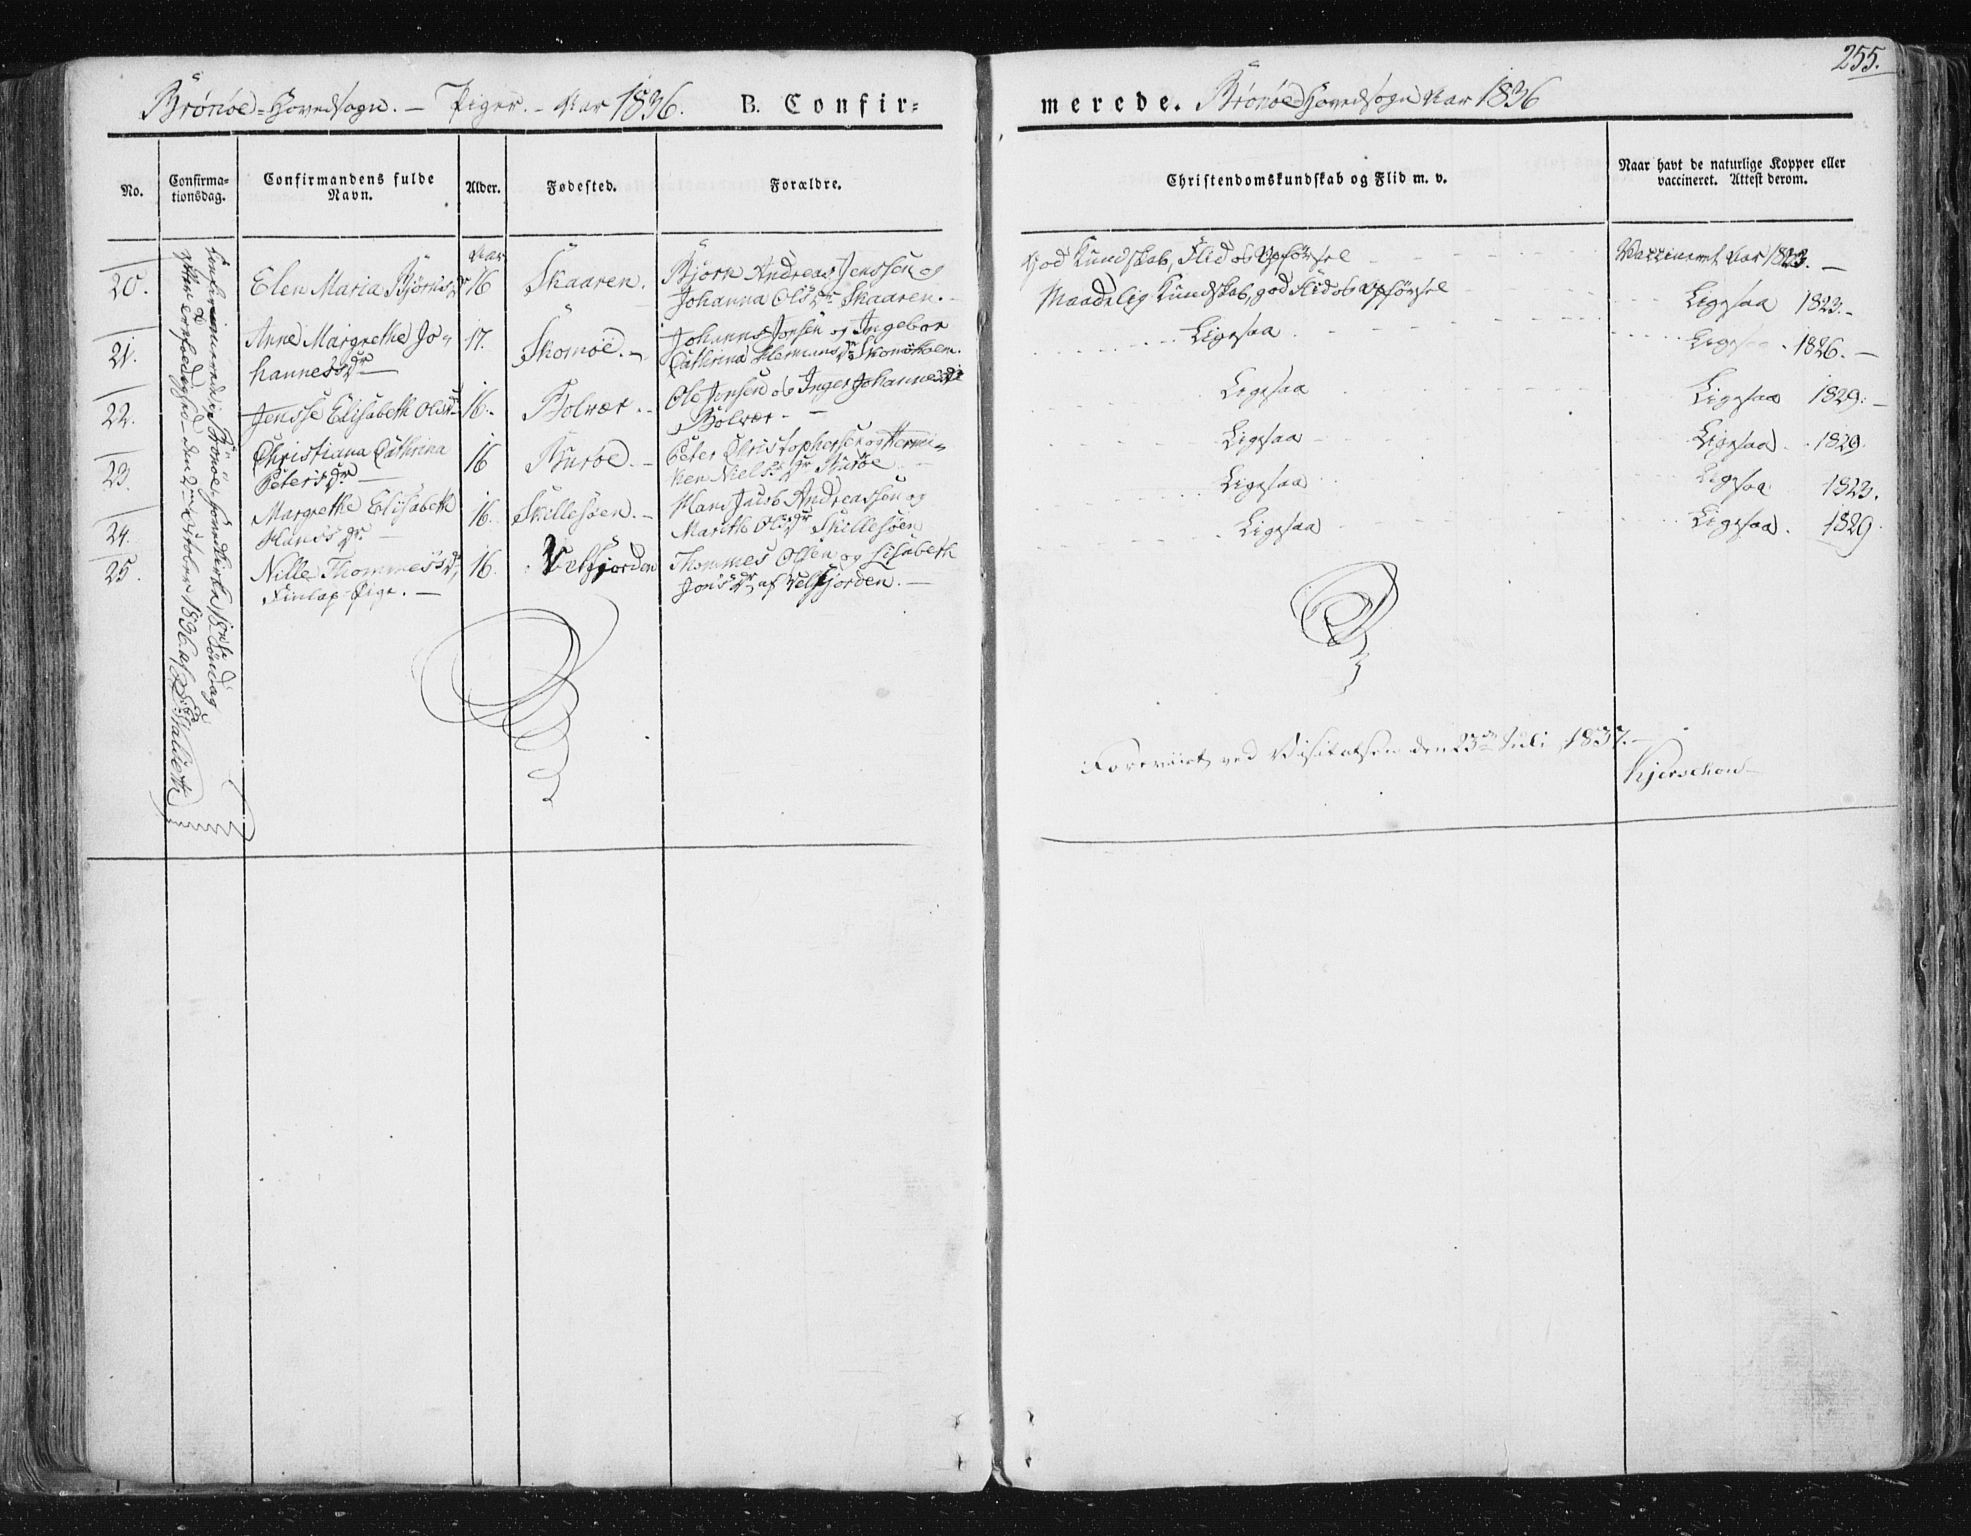 255.
Brönöe-Hovedsogn. – Piger. – Aar 1836. B. Confir-
merede. Brönöe Hovedsogn Aar 1836
No.
Confirma-
tionsdag.
Confirmandens fulde
Navn.
Alder.
Fødested.
Forældre.
Christendomskundskab og Flid m. v.
Naar havt de naturlige Kopper eller
vaccineret. Attest derom.
Confirmerede i Brönöe Hovedkirke 18de Söndag
efter Trefoldighed den 2den October 1836 af
20. Elen Maria Björnsdr
Aar
16 Skaaren. Bjorn Andreas Jenssen og
Johanna Olsdr Skaaren. –
God Kundskab, Flid og Opförsel
Vaccineret Aar 1823. –
21. Anne Margrethe Jo-
hannesdr –
17. Skomöe. – Johannes Jonsen og Ingebor
Cathrina Hermansdr Skomöe
Maadelig Kundskab, god Flid og Opförsel
Ligesaa 1823. –
22. Jensse Elisabeth Olsdr 16. Bolvær. – Ole Jensen og Inger Johannesdr
Bolvær. –
Ligesaa
Ligesaa 1826. –
23. Christiana Cathrina
Petersdr –
16 Buröe. – Peter Christophersen og Hermi-
ken Nielsdr Buröe. –
Ligesaa
Ligesaa 1829. –
24. Margrethe Elisabeth
Hansdr –
16. Skillesöen. – Hans Jacob Andreassen og
Marith Olsdr Skillesöen
Ligesaa
Ligesaa 1829.
25. Nille Thommesdr
Finlap Pige. –
16. Velfjorden Thommes Olsen og Lisabeth
Jonsdr af Velfjorden. –
Ligesaa
Ligesaa 1823.
Ligesaa
Ligesaa. 1829.
Foreviist ved Visitatsen den 23de Juli 1837. –
Kjerschow